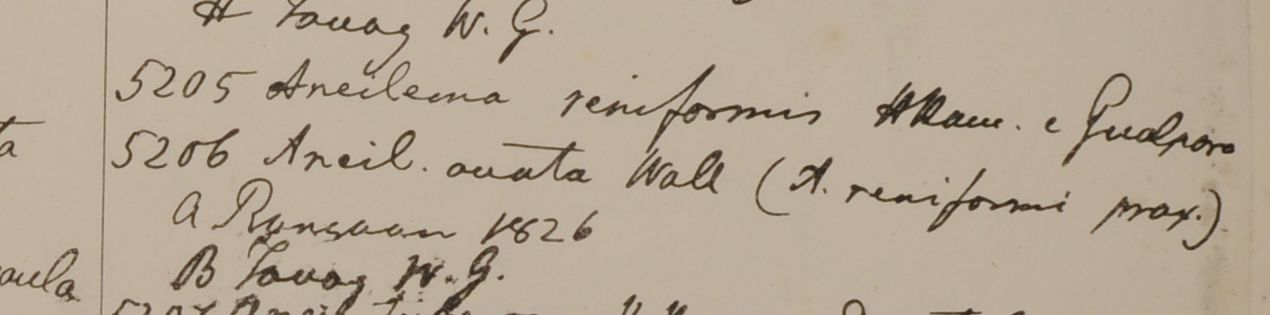 H Tavoy W. G.
5205 Aneilema reniformis HHam. e Gualpara
5206 Aneil. ovata Wall (A. reniformi prox.)
A Rangoon 1826
B Tavoy W. G.
5207 Aneil